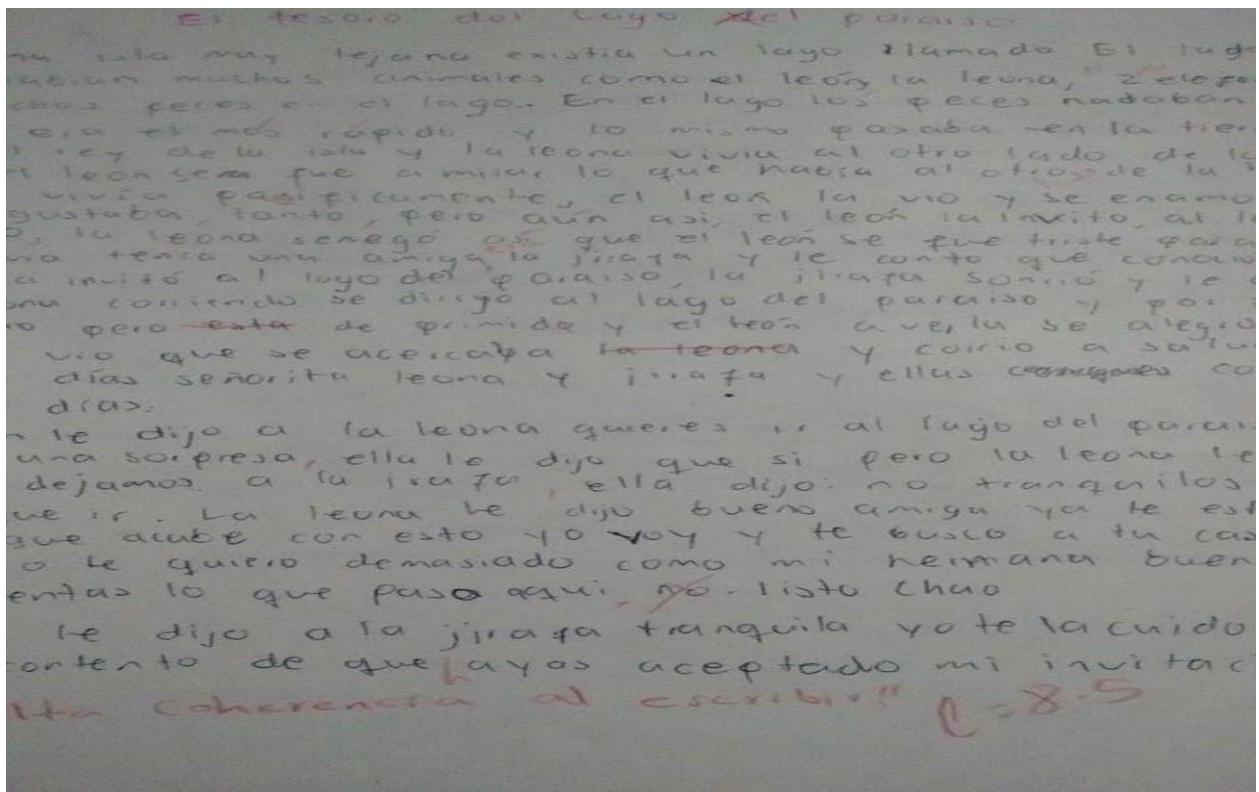 El tesoro del Lago del paraiso
una isla muy lejana existia un lago llamado El lag
habian muchos animales como el león, la leona, 2 elefa
chos peces en el lago. En el lago los peces nadaban
era el más rápido y lo mismo pasaba en la tier
l rey de la isla y la leona vivia al otro lado de la
l león fue a mirar lo que habia al otro de la
vivía pasificamente, el león la vio y se enamo
gustaba tanto, pero aún asi, el león la invito, al l
la leona senegó así que el león se fue triste para
na tenia una amiga la jirafa y le conto que
a invitó al lago del paraiso, la jirafa sonrió y le
ona corriendo se dirigó al lago del paraiso y por
o pero esta de primida y el león a verla se alegro
vio que se acercaba la leona y corrio a salu
días señorita leona y jirafa y ellas co
días.
n le dijo a la leona quieres ir al lago del parai
una sorpresa, ella le dijo que si pero la leona le
dejamos a la jirafa, ella dijo: no tranquilos
ue ir. La leona le dijo bueno amiga ya te est
que acabe con esto yo voy y te busco a tu cas
o te quiero demasiado como mi hermana buen
entas lo que paso aqui, no. listo chao
le dijo a la jirafa tranquila yo te la cuido
ontento de que hayas aceptado mi invitaci
lta coherencia al escribir" C=8.5